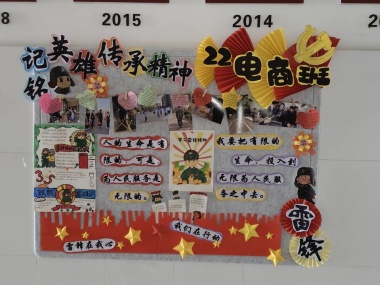 2015
2014
铭记英雄 传承精神
22电商班
人的生命是有
限的,可是
为人民服务是
无限的。
我要把有限的
生命,投入到
无限为人民服
务之中去。
雷锋
雷锋在我心
我们在行动